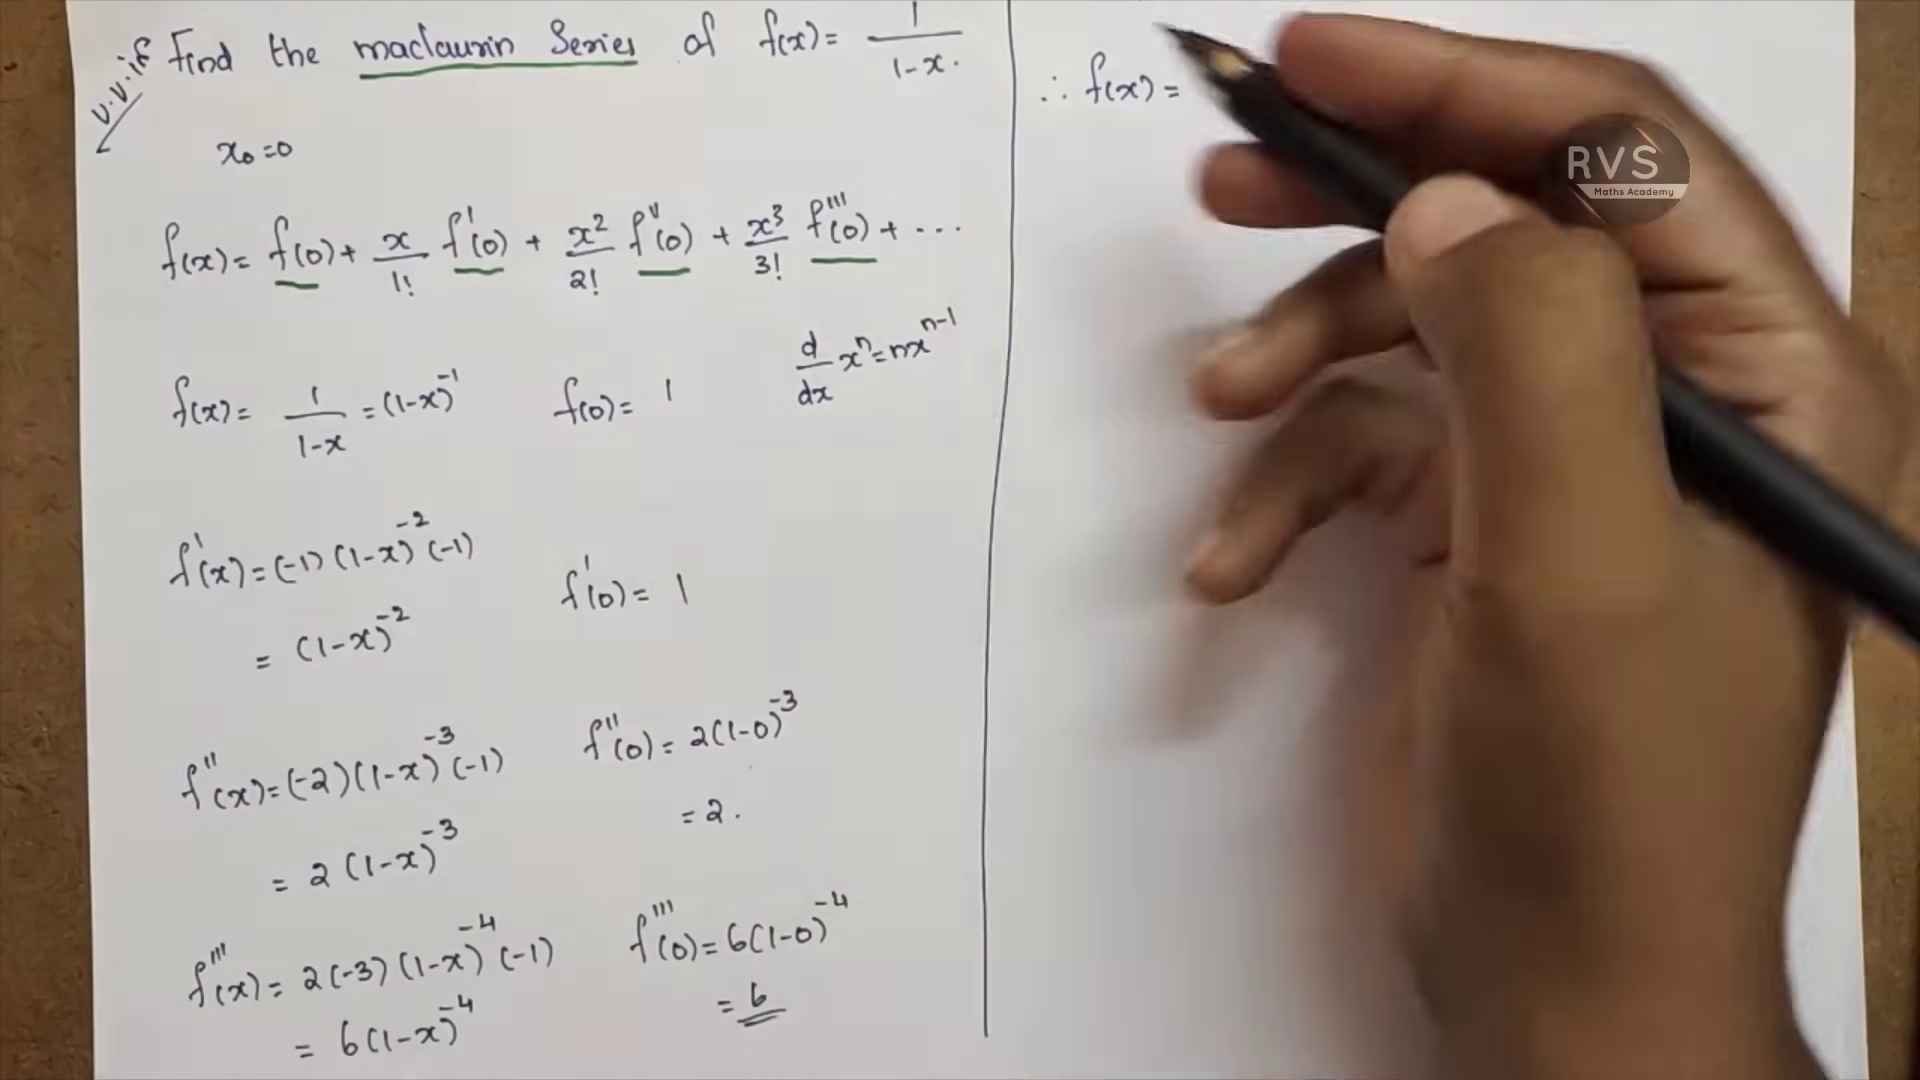 v.v.if
Find the maclaurin Series of f(x) = 1/(1-x).
x₀=0
f(x) = f(0) + x/1! f'(0) + x²/2! f''(0) + x³/3! f'''(0) + ...
f(x) = 1/(1-x) = (1-x)⁻¹
f(0) = 1
d/dx xⁿ = nxⁿ⁻¹
f'(x) = (-1)(1-x)⁻²(-1)
= (1-x)⁻²
f'(0) = 1
f''(x) = (-2)(1-x)⁻³(-1)
= 2(1-x)⁻³
f''(0) = 2(1-0)⁻³
= 2.
f'''(x) = 2(-3)(1-x)⁻⁴(-1)
= 6(1-x)⁻⁴
f'''(0) = 6(1-0)⁻⁴
= 6
∴ f(x) =
RVS
Maths Academy